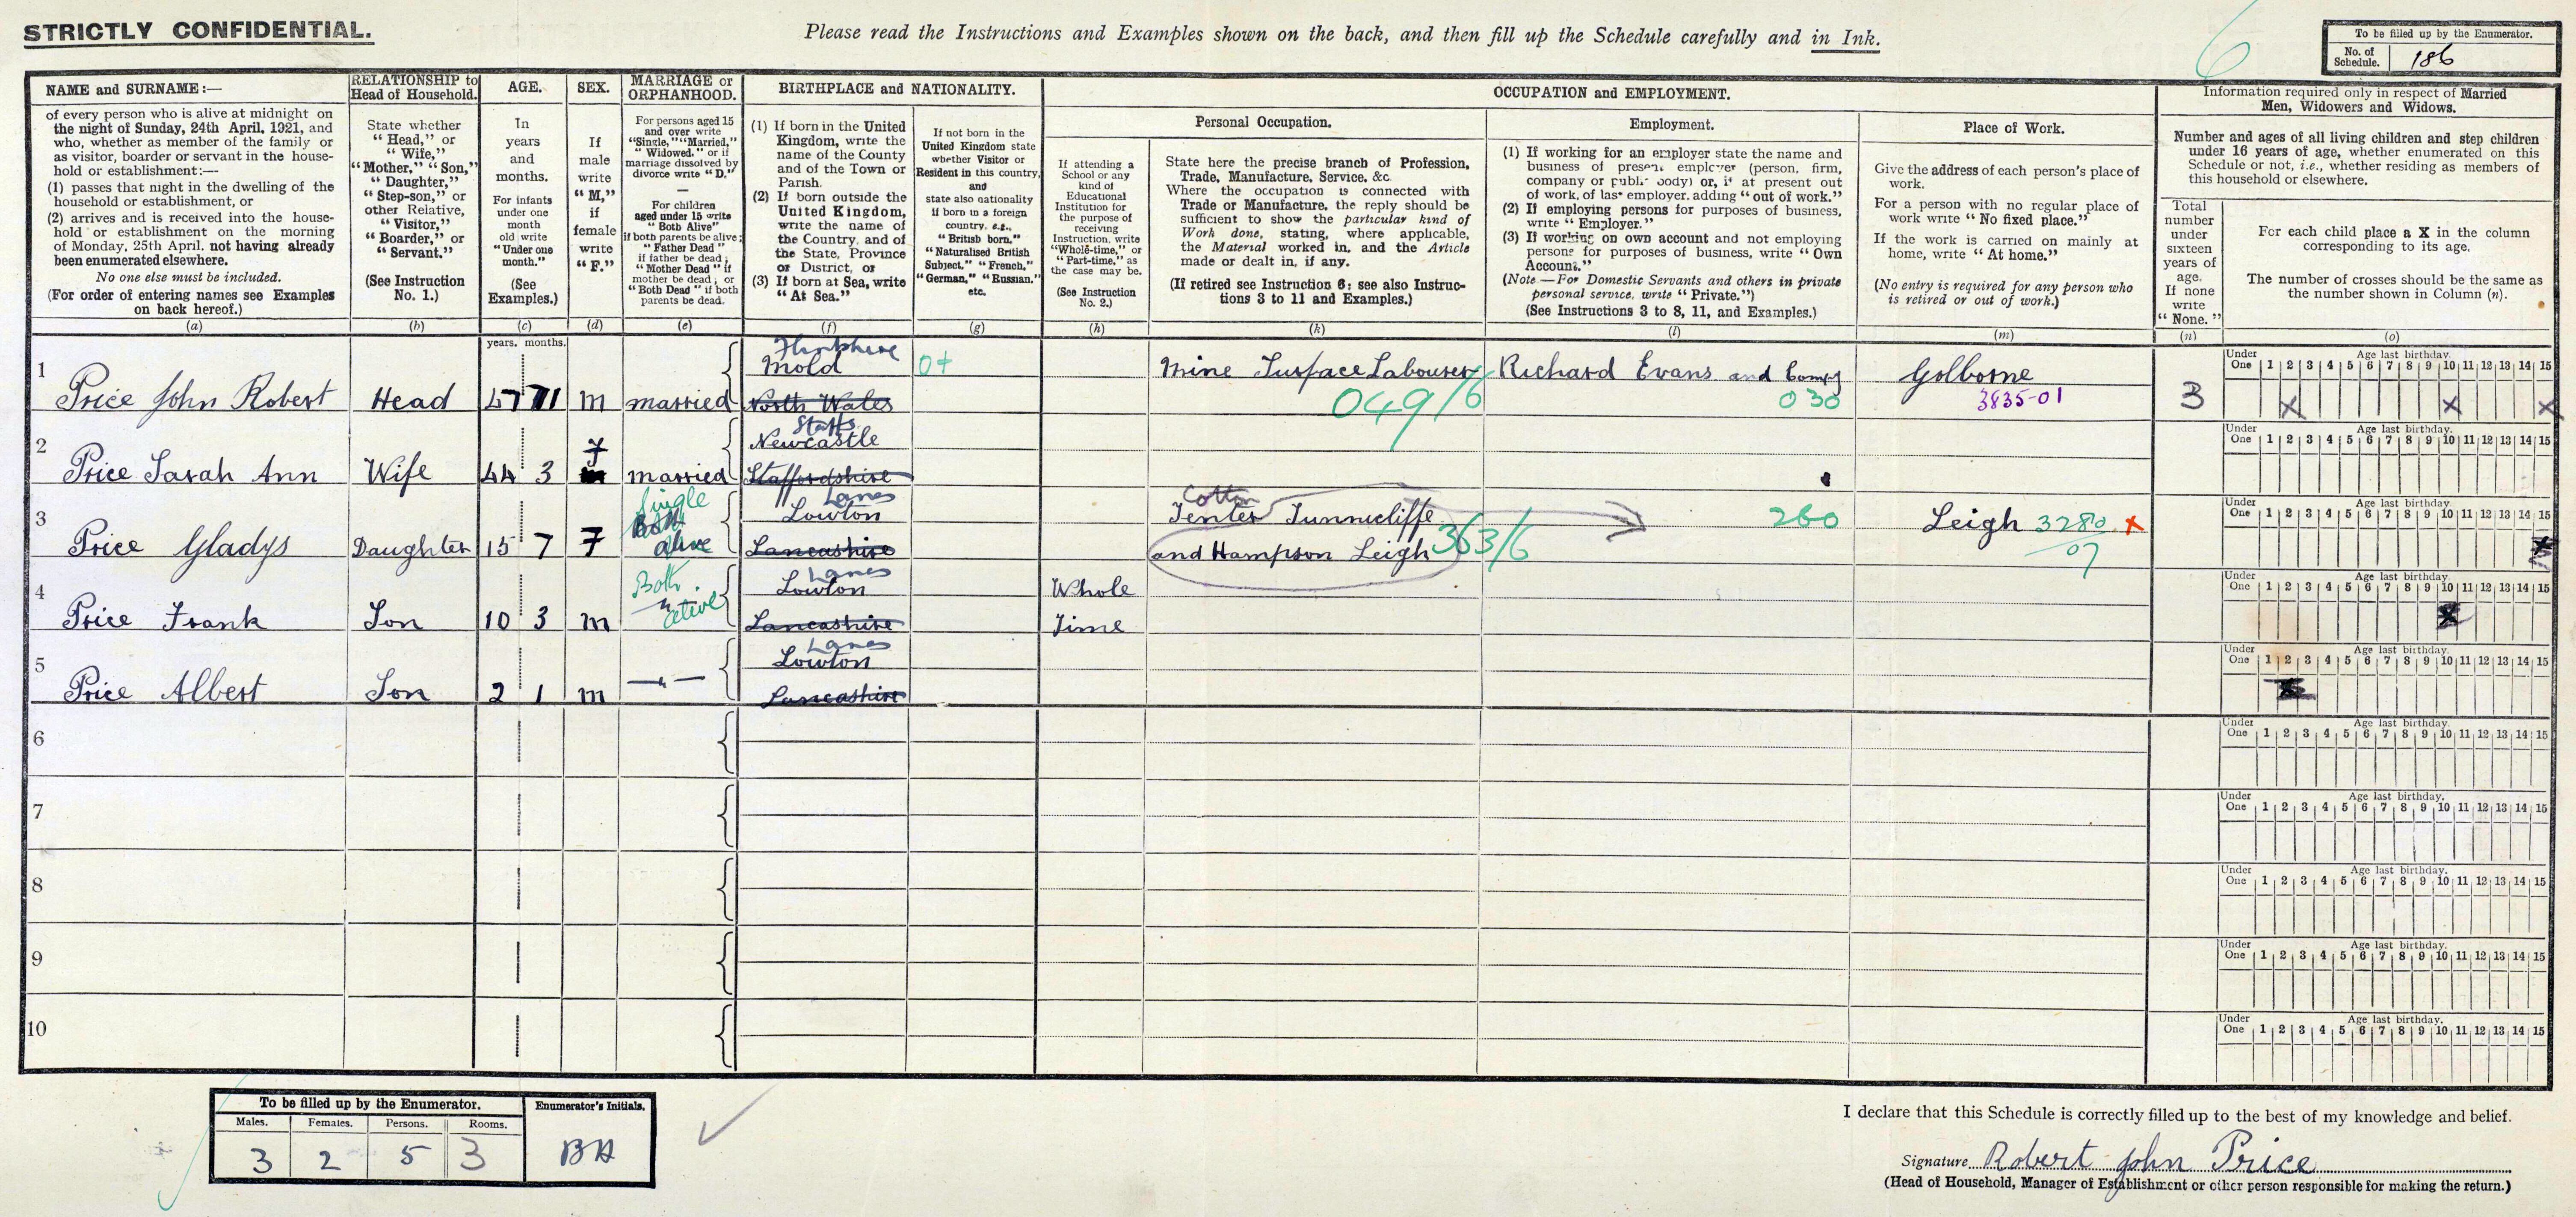 STRICTLY CONFIDENTIAL.
Please read the Instructions and Examples shown on the back, and then fill up the Schedule carefully and in Ink.
6
To be filled up by the Enumerator.
No. of Schedule. 186
NAME and SURNAME:—
of every person who is alive at midnight on
the night of Sunday, 24th April, 1921, and
who, whether as member of the family or
as visitor, boarder or servant in the house-
hold or establishment:—
(1) passes that night in the dwelling of the
household or establishment, or
(2) arrives and is received into the house-
hold or establishment on the morning
of Monday, 25th April, not having already
been enumerated elsewhere.
No one else must be included.
(For order of entering names see Examples
on back hereof.)
(a)
RELATIONSHIP to
Head of Household.
State whether
"Head," or
"Wife,"
"Mother," "Son,"
"Daughter,"
"Step-son," or
other Relative,
"Visitor,"
"Boarder," or
"Servant."
(See Instruction
No. 1.)
(b)
AGE.
In
years
and
months.
For infants
under one
month
old write
"Under one
month."
(See
Examples.)
(c)
SEX.
If
male
write
"M,"
if
female
write
"F."
(d)
MARRIAGE or
ORPHANHOOD.
For persons aged 15
and over write
"Single," "Married,"
"Widowed," or if
marriage dissolved by
divorce write "D."
—
For children
aged under 15 write
"Both Alive"
if both parents be alive;
"Father Dead"
if father be dead;
"Mother Dead" if
mother be dead; or
"Both Dead" if both
parents be dead.
(e)
BIRTHPLACE and NATIONALITY.
(1) If born in the United
Kingdom, write the
name of the County
and of the Town or
Parish.
(2) If born outside the
United Kingdom,
write the name of
the Country, and of
the State, Province
or District, or
(3) If born at Sea, write
"At Sea."
(f)
If not born in the
United Kingdom state
whether Visitor or
Resident in this country,
and
state also nationality
if born in a foreign
country. e.g.,
"British born,"
"Naturalised British
Subject," "French,"
"German," "Russian,"
etc.
(g)
OCCUPATION and EMPLOYMENT.
Personal Occupation.
If attending a
School or any
kind of
Educational
Institution for
the purpose of
receiving
Instruction, write
"Whole-time," or
"Part-time," as
the case may be.
(See Instruction
No. 2.)
(h)
State here the precise branch of Profession,
Trade, Manufacture, Service, &c.
Where the occupation is connected with
Trade or Manufacture, the reply should be
sufficient to show the particular kind of
Work done, stating, where applicable,
the Material worked in, and the Article
made or dealt in, if any.
(If retired see Instruction 6: see also Instruc-
tions 3 to 11 and Examples.)
(k)
Employment.
(1) If working for an employer state the name and
business of present employer (person, firm,
company or public body) or, if at present out
of work, of last employer, adding "out of work."
(2) If employing persons for purposes of business,
write "Employer."
(3) If working on own account and not employing
persons for purposes of business, write "Own
Account."
(Note—For Domestic Servants and others in private
personal service, write "Private.")
(See Instructions 3 to 8, 11, and Examples.)
(l)
Place of Work.
Give the address of each person's place of
work.
For a person with no regular place of
work write "No fixed place."
If the work is carried on mainly at
home, write "At home."
(No entry is required for any person who
is retired or out of work.)
(m)
Information required only in respect of Married
Men, Widowers and Widows.
Number and ages of all living children and step children
under 16 years of age, whether enumerated on this
Schedule or not, i.e., whether residing as members of
this household or elsewhere.
Total
number
under
sixteen
years of
age.
If none
write
"None."
(n)
For each child place a X in the column
corresponding to its age.
The number of crosses should be the same as
the number shown in Column (n).
(o)
years. months.
Flintshire
1 Mold 0+ Mine Surface Labourer Richard Evans and Compy Golborne
Price John Robert Head 47 11 M married North Wales 049/6 030 3835-01 3
Under One 1 2 3 4 5 6 7 8 9 10 11 12 13 14 15
Age last birthday.
X X X
Staffs
2 Newcastle
Price Sarah Ann Wife 44 3 F married Staffordshire
Under One 1 2 3 4 5 6 7 8 9 10 11 12 13 14 15
Age last birthday.
Single Lancs Cotton
3 Both Lowton Tenter Tunnicliffe 260 Leigh 3280 X
Price Gladys Daughter 15 7 F alive Lancashire and Hampson Leigh 363/6 07
Under One 1 2 3 4 5 6 7 8 9 10 11 12 13 14 15
Age last birthday.
X
Both Lancs
4 Lowton Whole
Price Frank Son 10 3 M Lancashire Time
Under One 1 2 3 4 5 6 7 8 9 10 11 12 13 14 15
Age last birthday.
X
Lancs
5 Lowton
Price Albert Son 2 1 M —"— Lancashire
Under One 1 2 3 4 5 6 7 8 9 10 11 12 13 14 15
Age last birthday.
X
6
Under One 1 2 3 4 5 6 7 8 9 10 11 12 13 14 15
Age last birthday.
7
Under One 1 2 3 4 5 6 7 8 9 10 11 12 13 14 15
Age last birthday.
8
Under One 1 2 3 4 5 6 7 8 9 10 11 12 13 14 15
Age last birthday.
9
Under One 1 2 3 4 5 6 7 8 9 10 11 12 13 14 15
Age last birthday.
10
Under One 1 2 3 4 5 6 7 8 9 10 11 12 13 14 15
Age last birthday.
To be filled up by the Enumerator.
Males. Females. Persons. Rooms.
3 2 5 3
Enumerator's Initials.
BH
I declare that this Schedule is correctly filled up to the best of my knowledge and belief.
Signature Robert John Price
(Head of Household, Manager of Establishment or other person responsible for making the return.)